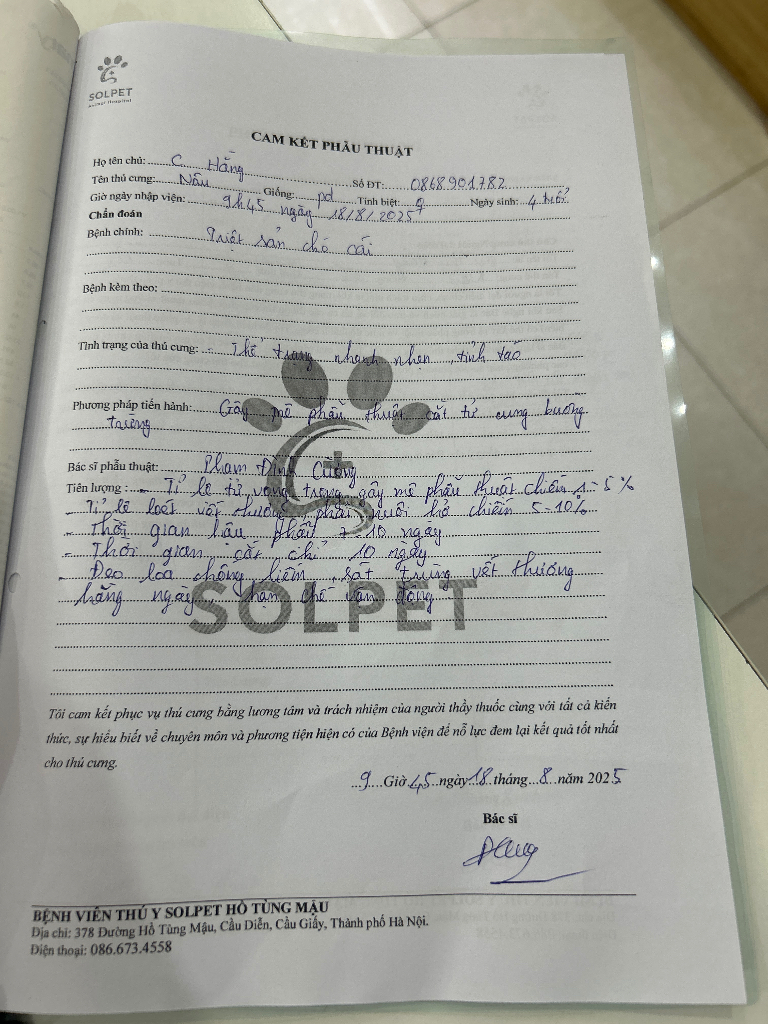 SOLPET
Animal Hospital
CAM KẾT PHẪU THUẬT
Họ tên chủ: C Hằng Số ĐT: 0868901782
Tên thú cưng: Nâu Giống: pd Tính biệt: ♀ Ngày sinh: 4 tuổi
Giờ ngày nhập viện: 9h45 ngày 18/8/2025
Chẩn đoán
Bệnh chính: Triệt sản chó cái
Bệnh kèm theo:
Tình trạng của thú cưng: - Thể trạng nhanh nhẹn, tỉnh táo
Phương pháp tiến hành: Gây mê phẫu thuật cắt tử cung buồng
trứng
Bác sĩ phẫu thuật: Phạm Đình Cường
Tiên lượng: - Tỉ lệ tử vong trong gây mê phẫu thuật chiếm 1-5%
- Tỉ lệ loét vết thương phải nuôi hở chiếm 5-10%
- Thời gian hậu phẫu 7-10 ngày
- Thời gian cắt chỉ 10 ngày
- Đeo loa chống liếm, sát trùng vết thương
hằng ngày, hạn chế vận động
SOLPET
Tôi cam kết phục vụ thú cưng bằng lương tâm và trách nhiệm của người thầy thuốc cùng với tất cả kiến
thức, sự hiểu biết về chuyên môn và phương tiện hiện có của Bệnh viện để nỗ lực đem lại kết quả tốt nhất
cho thú cưng.
9 Giờ 45 ngày 18 tháng 8 năm 2025
Bác sĩ
BỆNH VIỆN THÚ Y SOLPET HỒ TÙNG MẬU
Địa chỉ: 378 Đường Hồ Tùng Mậu, Cầu Diễn, Cầu Giấy, Thành phố Hà Nội.
Điện thoại: 086.673.4558